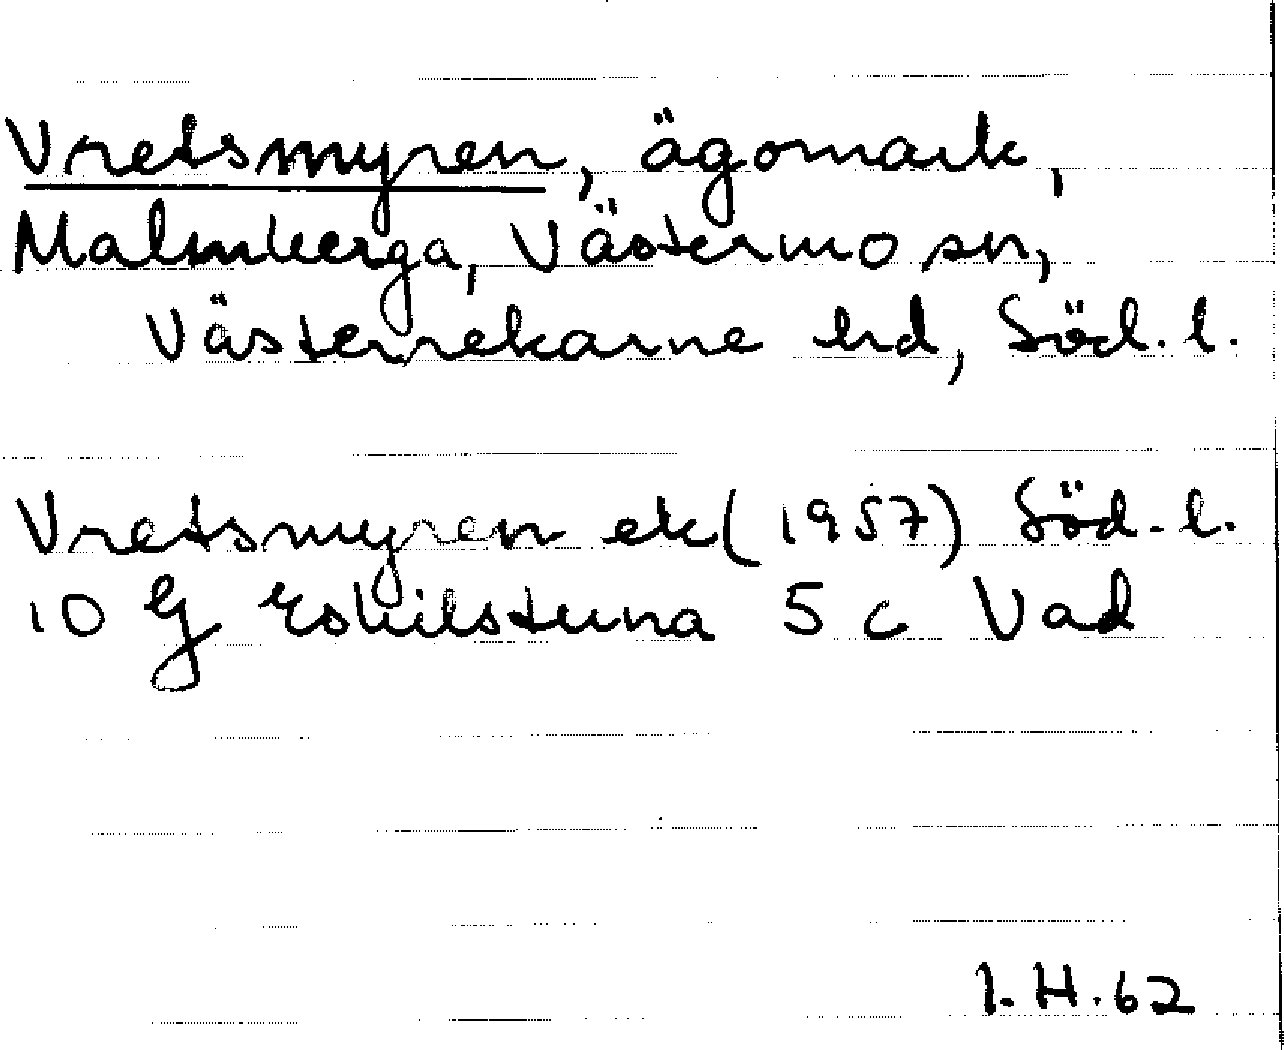 Vretsmyren, ägomark,
Malmberga, Västermo sn,
Västerrekarne hd, Söd. l.
Vretsmyren ek (1957) Söd. l.
10 G Eskilstuna 5 c Vad
I. H. 62